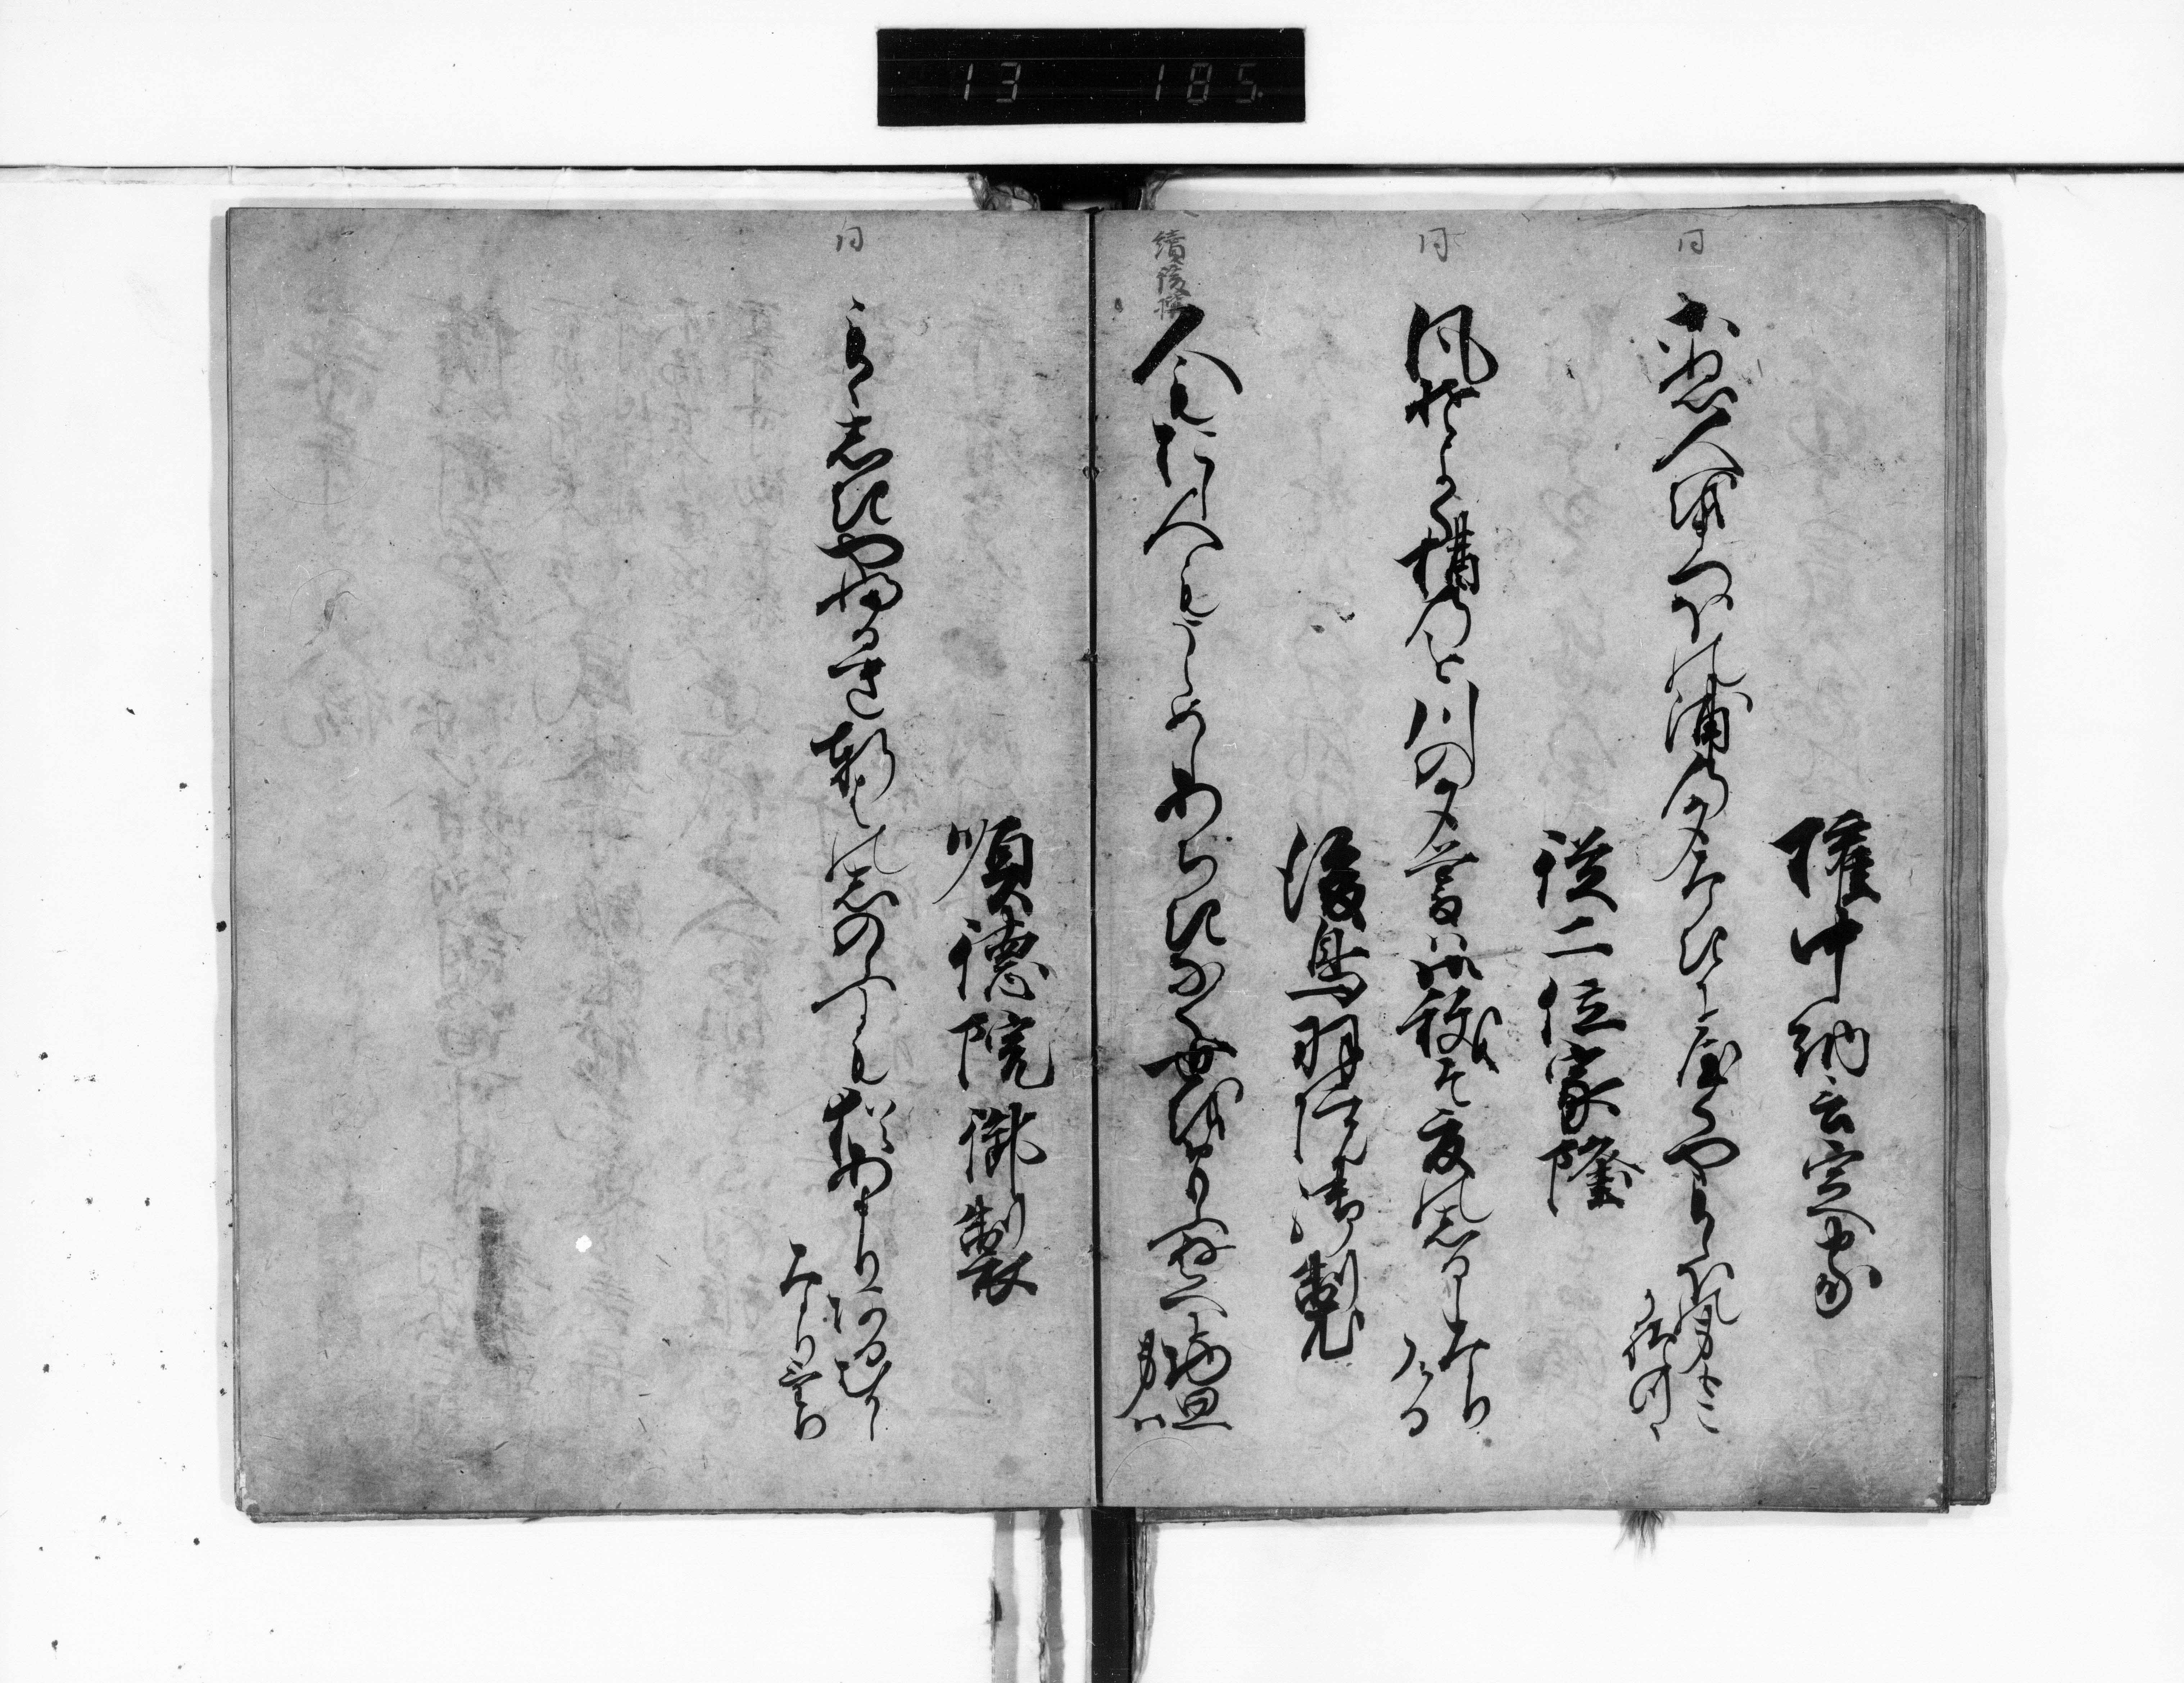 13 185
権中納言定家
同
こぬ人をまつほの浦の夕なきにやくやもしほの身も
こかれつゝ
従二位家隆
同
風そよくならの小川の夕暮は御祓そ夏のしるしなり
ける
後鳥羽院御製
続後撰
人もおし人もうらめしあちきなく世をおもふゆへに物思
身は
順徳院御製
同
もゝしきやふるき軒はの忍ふにも猶あまりあるむかし
なりけり